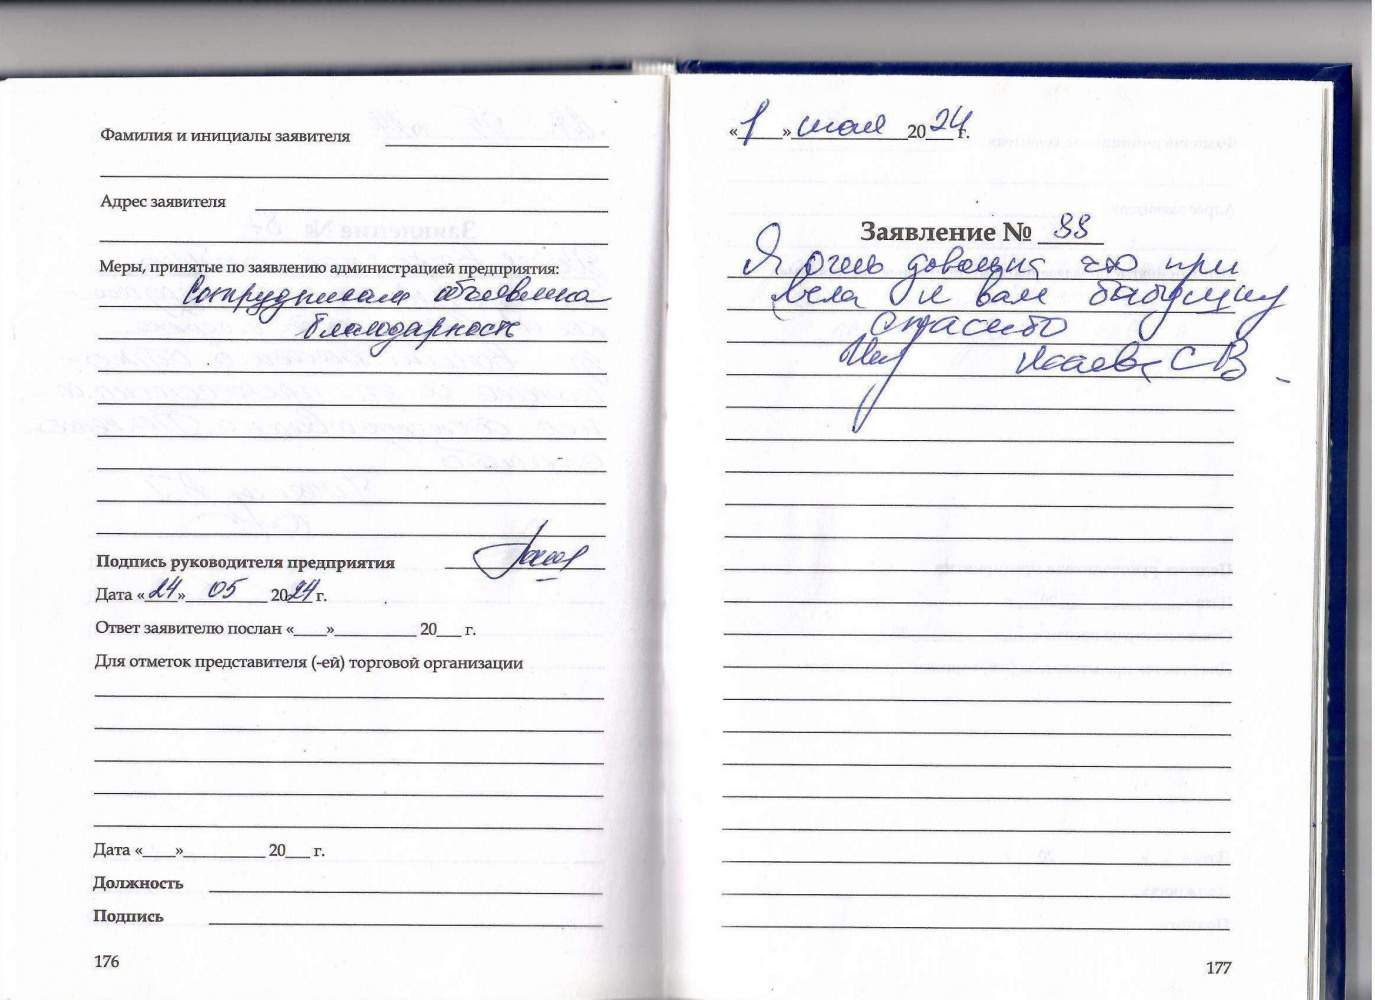 Фамилия и инициалы заявителя
Адрес заявителя
Меры, принятые по заявлению администрацией предприятия:
Сотрудникам объявлена
благодарность
Подпись руководителя предприятия
Дата «24» 05 2024 г.
Ответ заявителю послан «____»__________ 20___ г.
Для отметок представителя (-ей) торговой организации
Дата «____»__________ 20___ г.
Должность
Подпись
176
«1» июля 2024 г.
Заявление № 88
Я очень довольна что при
вела к вам бабушку
спасибо
СВ
177